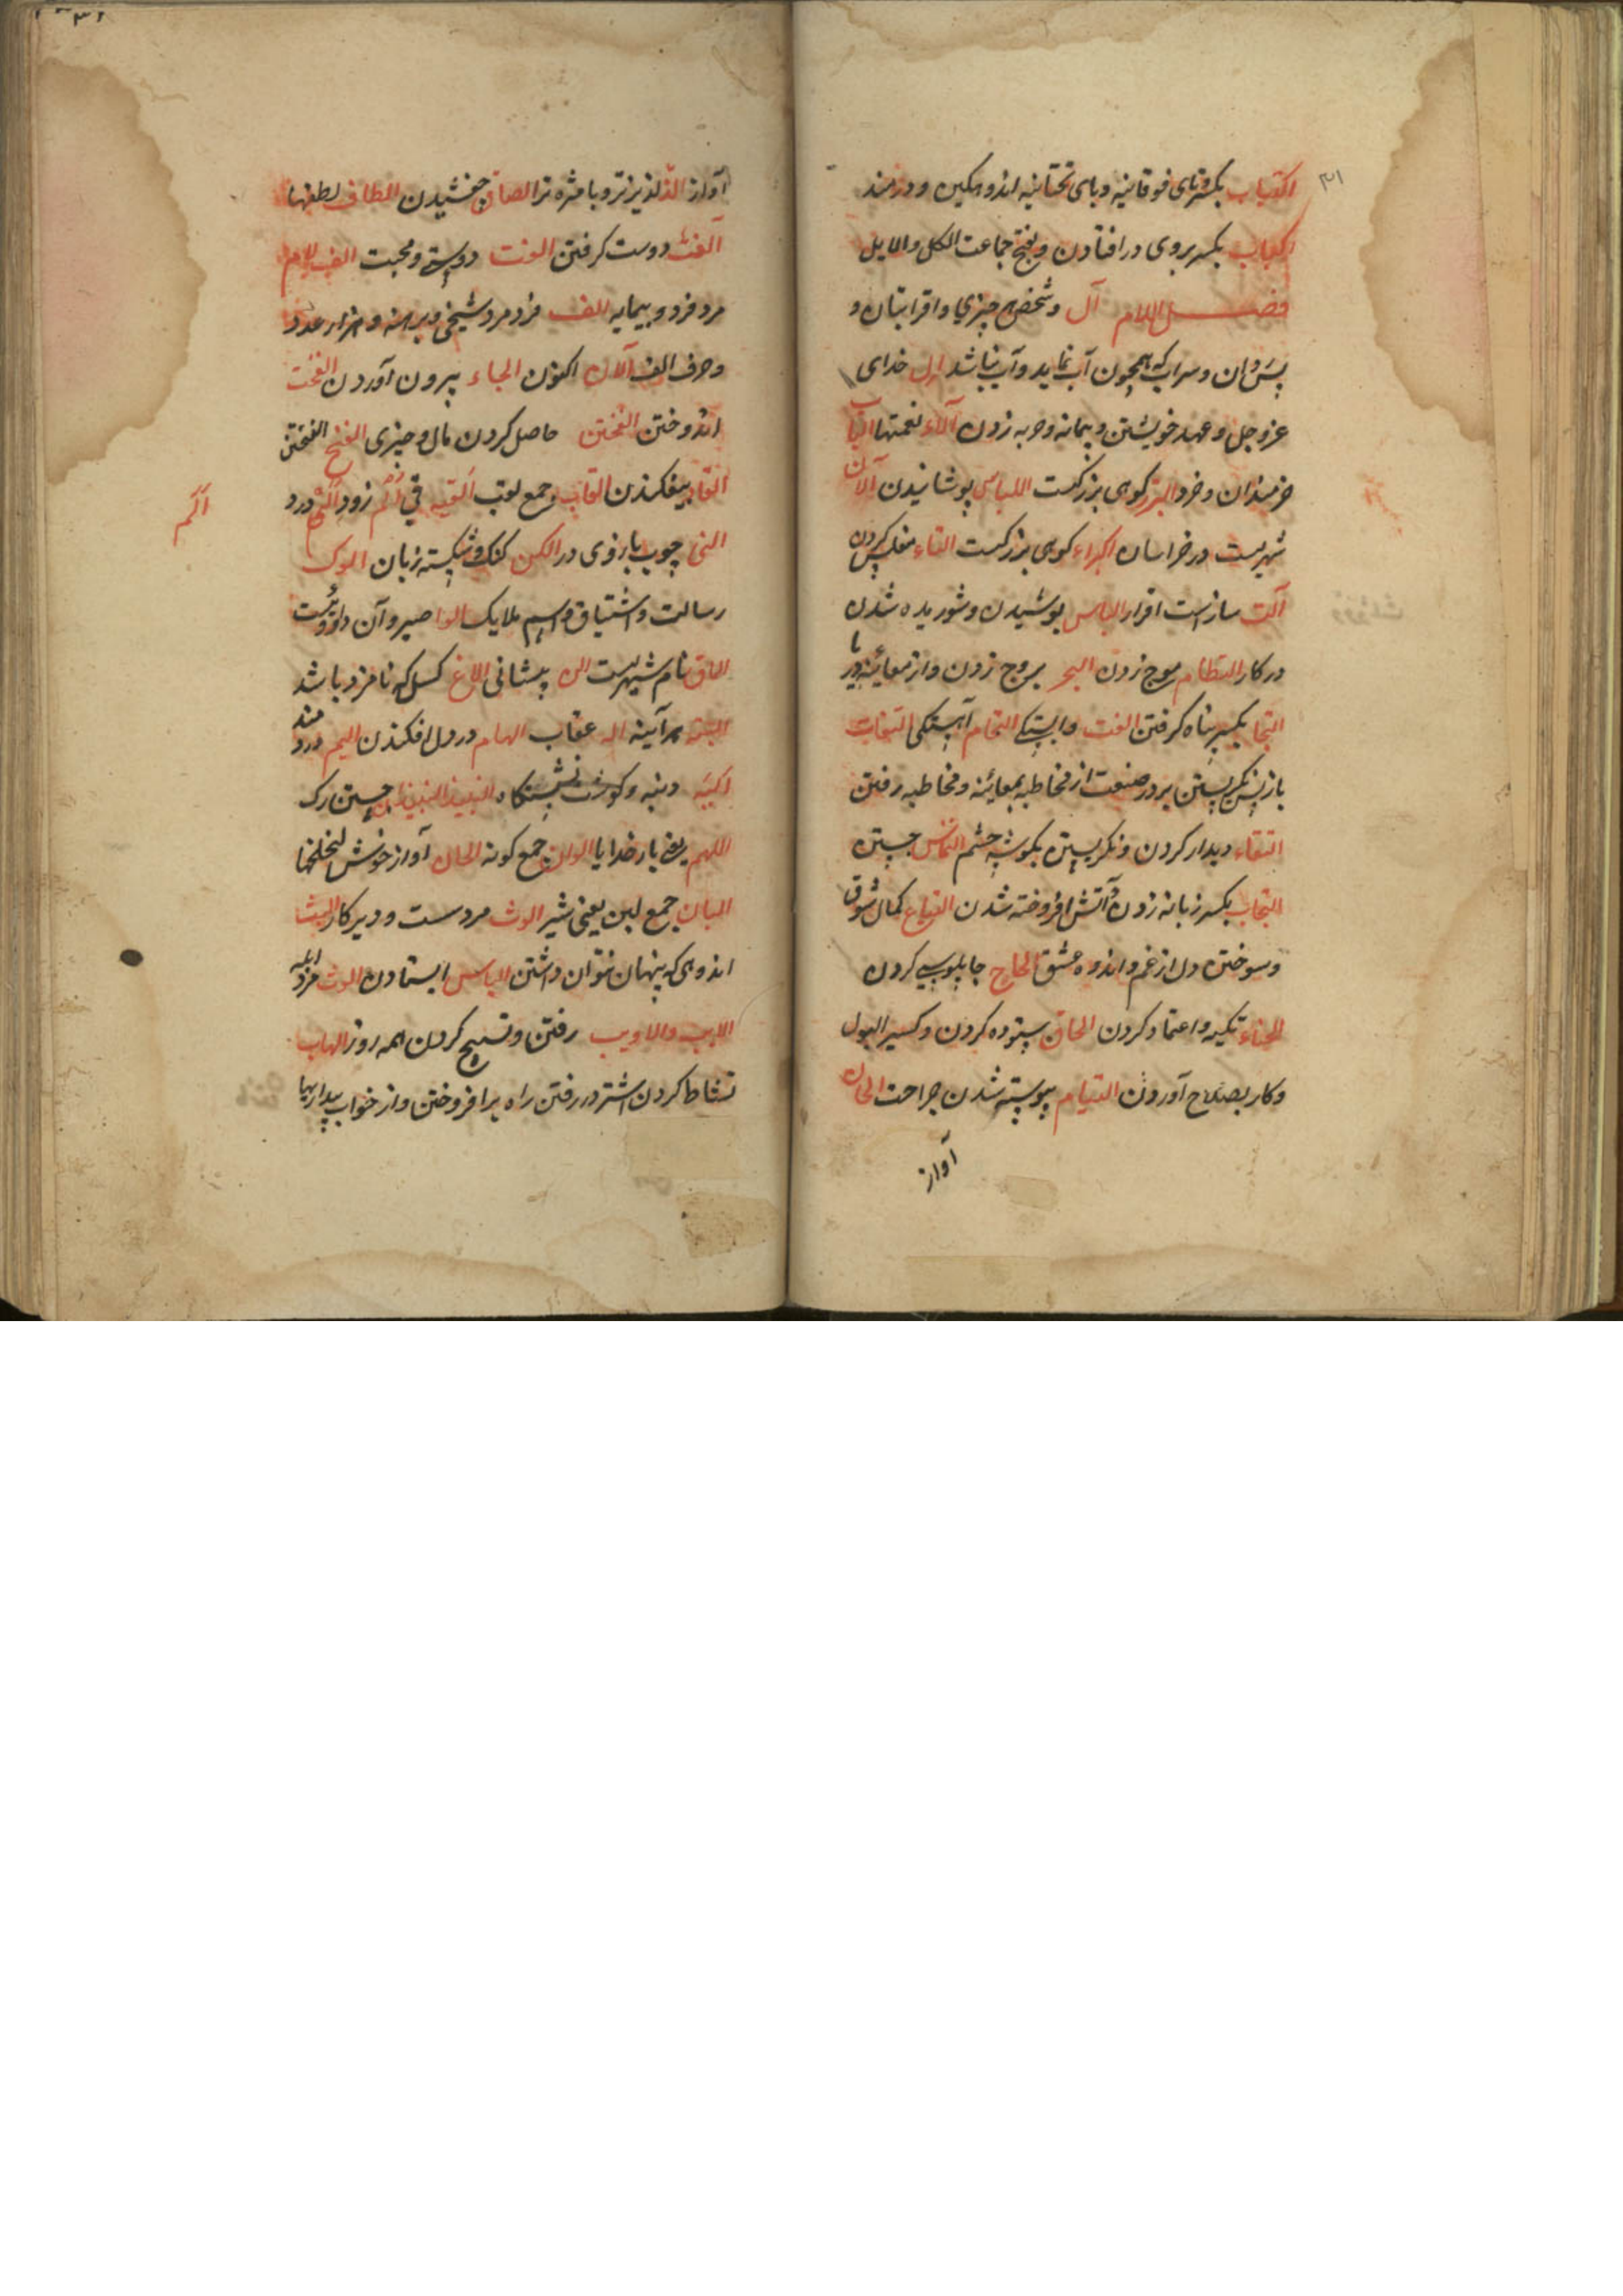 ۳۱
اکتیاب بکسرتای فوقانیه و بای تحتانیه اندوهکین و دردمند
اکباب بکسر بروی در افتادن و بفتح جماعت الکل والمایل
فصل اللام آل و شخص هر چیزی و اقرابتان و
پس روان و سراب که همچون آب نماید و آب نباشد ال خدای
عز و جل و عهد خویشتن و پیمانه و حربه زدن آلاء نعمتها الباب
خرمندان و خرد البرز کوهی بزرکست اللباس پوشانیدن آلان
شهریست در خراسان کوهی بزرکست القاء منعکس کردن
آلت ساز است اقرار الباس پوشیدن و شوریده شدن
در کار التطام موج زدن البحر موج زدن و از معاینه در یا
التجا بکسر پناه کرفتن الفت وابستکی التحام آهستکی التفات
باز پس نکریستن بردر صنعت از مخاطبه بمعاینه و مخاطبه رفتن
التقاء دیدار کردن و نکریستن بکوشه چشم التماس جستن
التهاب بکسر زبانه زدن آتش افروخته شدن التیاع کمال شوق
و سوختن دل از غم و اندوه عشق الحاح چاپلوسی کردن
الجاء تکیه و اعتماد کردن الحاق ستوده کردن و کسیر البول
و کار بصلاح آوردن التیام پیوسته شدن جراحت الحان
آواز
آواز الذ لذیذتر و با مزه تر الصاق چفشیدن الطاف لطفها
آلفت دوست کرفتن الفت دوستی و محبت الف بلام
مرد فرد و بیمایه الف فرد مرد شیخی و برهنه و هزار عدد
و حرف الف آلان اکنون الجاء بیرون آوردن الفخت
اندوختن الفختن حاصل کردن مال و چیزی الفنج الفختن
القاء بیفکندن القاب جمع لقب القیه قی الم زود الم درد
الم
النی چوب بازوی در الکن کنک و شکسته زبان الوک
رسالت و اشتیاق و اسم ملایک الوا صبر و آن داروئیست
الاق نام شهریست الن پیشانی الاغ کسی که نامزد باشد
البته هر آینه اله عقاب الهام در دل افکندن الیم دردمند
الیه دنبه و کوشت نشستنکاه جستن رک
اللهم یعنی بار خدایا الوان جمع کونه الحان آواز خوش
البان جمع لبن یعنی شیر الوث مرد سست و دیر کار البث
اندوهی که پنهان نتوان داشتن الیاس ایستادن الوث مرد ابله
الایب والاویب رفتن و تسبیح کردن همه روز الهاب
نشاط کردن اشتر در رفتن راه برافروختن و از خواب بیداریها